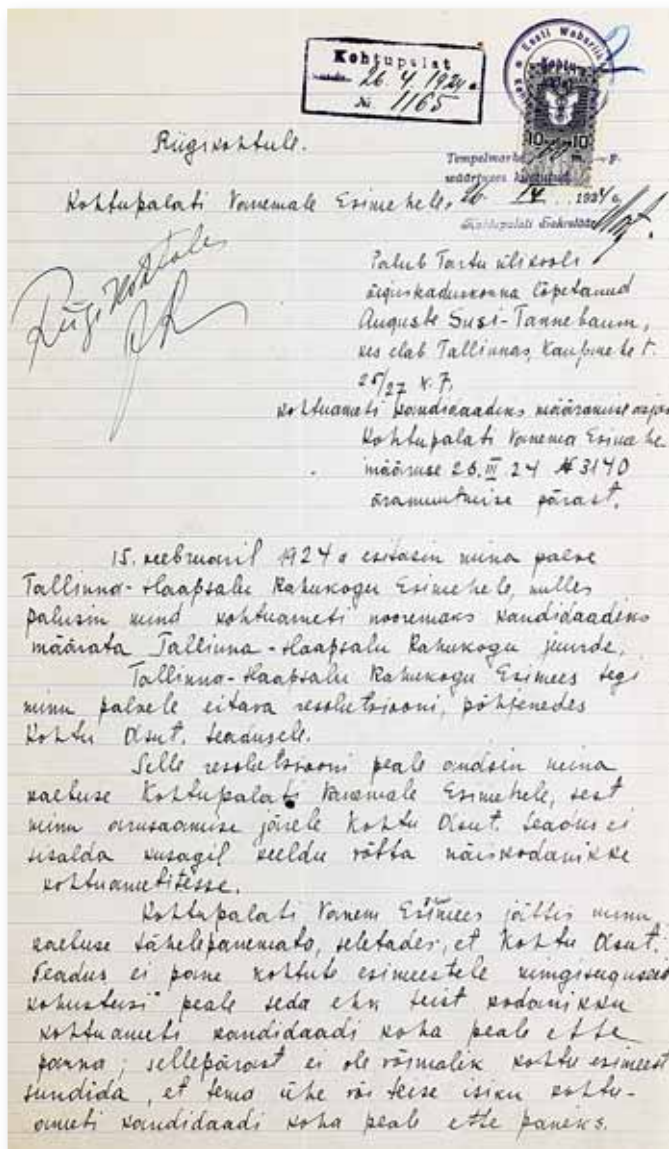 Kohtupalat
26. 4. 1924 a
№ 1165
Eesti Vabariik
2
10 10
Riigikohtule.
Tempelmarke m. p.
väärtuses kustutud
Kohtupalati Vanemale Esimehele
26 14 1924 a.
Kohtupalati Sekretäär
Riigikohtule
Palub Tartu ülikooli
õiguskaduskonna lõpetanud
Auguste Susi-Tannebaum,
kes elab Tallinnas, Kaupmehe t.
25/27 k. 7,
kohtuameti kandidaadiks määramise asjas
Kohtupalati Vanema Esimehe
määruse 26. III 24 № 3140
äramuutmise pärast.
15. veebruaril 1924 a esitasin mina palve
Tallinna-Haapsalu Rahukogu Esimehele, milles
palusin mind kohtuameti nooremaks kandidaadiks
määrata Tallinna-Haapsalu Rahukogu juurde.
Tallinna-Haapsalu Rahukogu Esimees tegi
minu palvele eitava resolutsiooni, põhjenedes
Kohtu Asut. Seadusele.
Selle resolutsiooni peale andsin mina
kaebuse Kohtupalati Vanemale Esimehele, sest
minu arusaamise järele Kohtu Asut. Seadus ei
sisalda kusagil keeldu võtta naiskodanikke
kohtuametitesse.
Kohtupalati Vanem Esimees jättis minu
kaebuse tähelepanemata, seletades, et Kohtu Asut.
Seadus ei pane kohtute esimeestele mingisuguseid
kohustusi peale seda ehk teist kodanikku
kohtuameti kandidaadi koha peale ette
panna; sellepärast ei ole võimalik kohtu esimeest
sundida, et tema ühe või teise isiku kohtu-
ameti kandidaadi koha peale ette paneks.